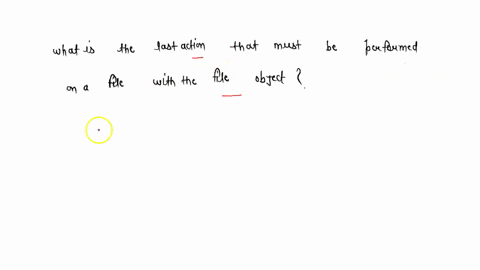 what is the last action that must be performed
on a file with the file object ?